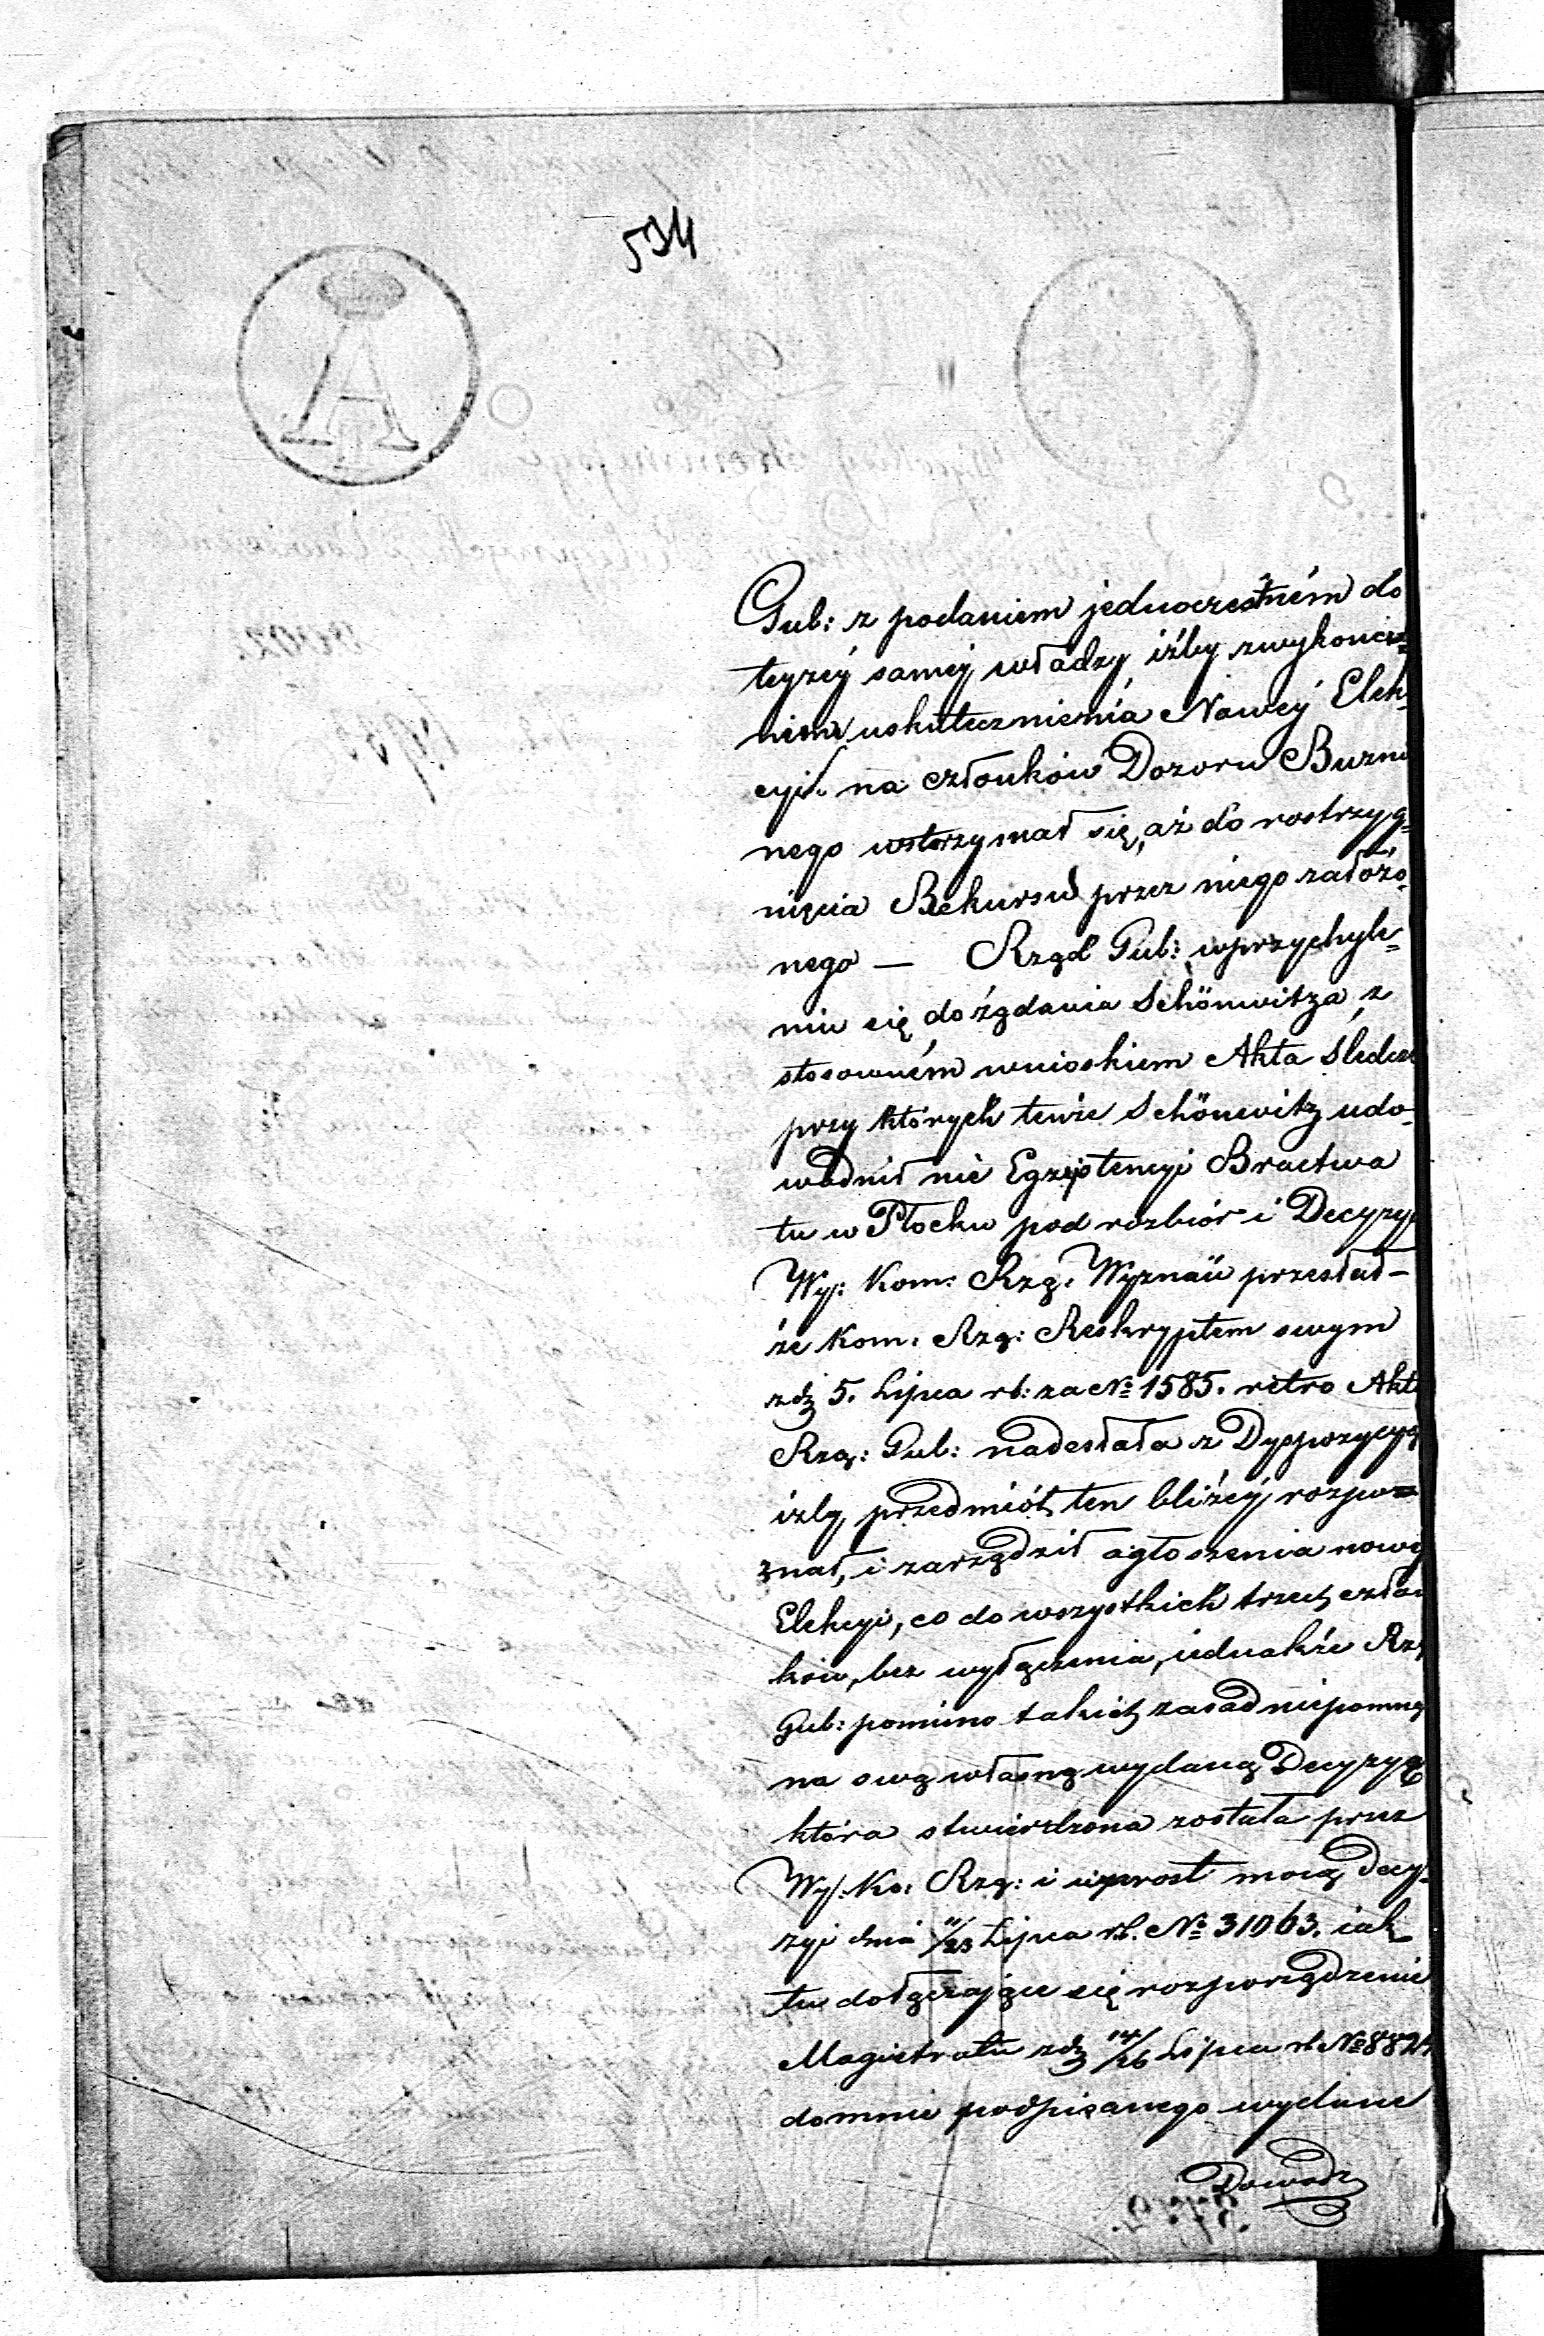 534
A
Gub: z podaniem jednocześném do
teyżéy saméy władzy iżby zwykonein
niem uskutecznienia Nowéy Elek-
cyi na członków Dozoru Buzni
nego wstrzymał się, aż do rostrzyg=
nięcia Rekursu przez niego założo-
nego — Rząd Gub: wprzychyle=
niu się do żądania Schönwitza, z
stosowném wnioskiem Akta śledcze
przy których tenże Schönwitz udo-
wodnił nie Egzystencyi Bractwa
tu w Płocku pod rozbiór i Decyzyi
Wy: Kom: Rzą: Wyznań przesłał –
że Kom: Rzą: Reskryptem swym
zdz 5. Lipca rb: za № 1585. retro Akta
Rzą: Gub: nadesłała z Dyspozycyą
iżby przedmiót ten bliżéy rozpo=
znał, i zarządził ogłoszenia nowéy
Elekcyi, co do wszystkich trzech człon
ków, bez wyłączenia, iednakże Rzą
Gub: pomimo takich zasad niepomny
na swą własną wydaną Decyzyą
która stwierdzona została przez
Wy: Ko: Rzą: i wprost mocą Decy-
zyi dnia 11/23 Lipca rb. № 31063. iak
tu dołączające się rozporządzenie
Magistratu zdz 14/26 Lipca rb № 8824
do mnie podpisanego wydane
Dowodz